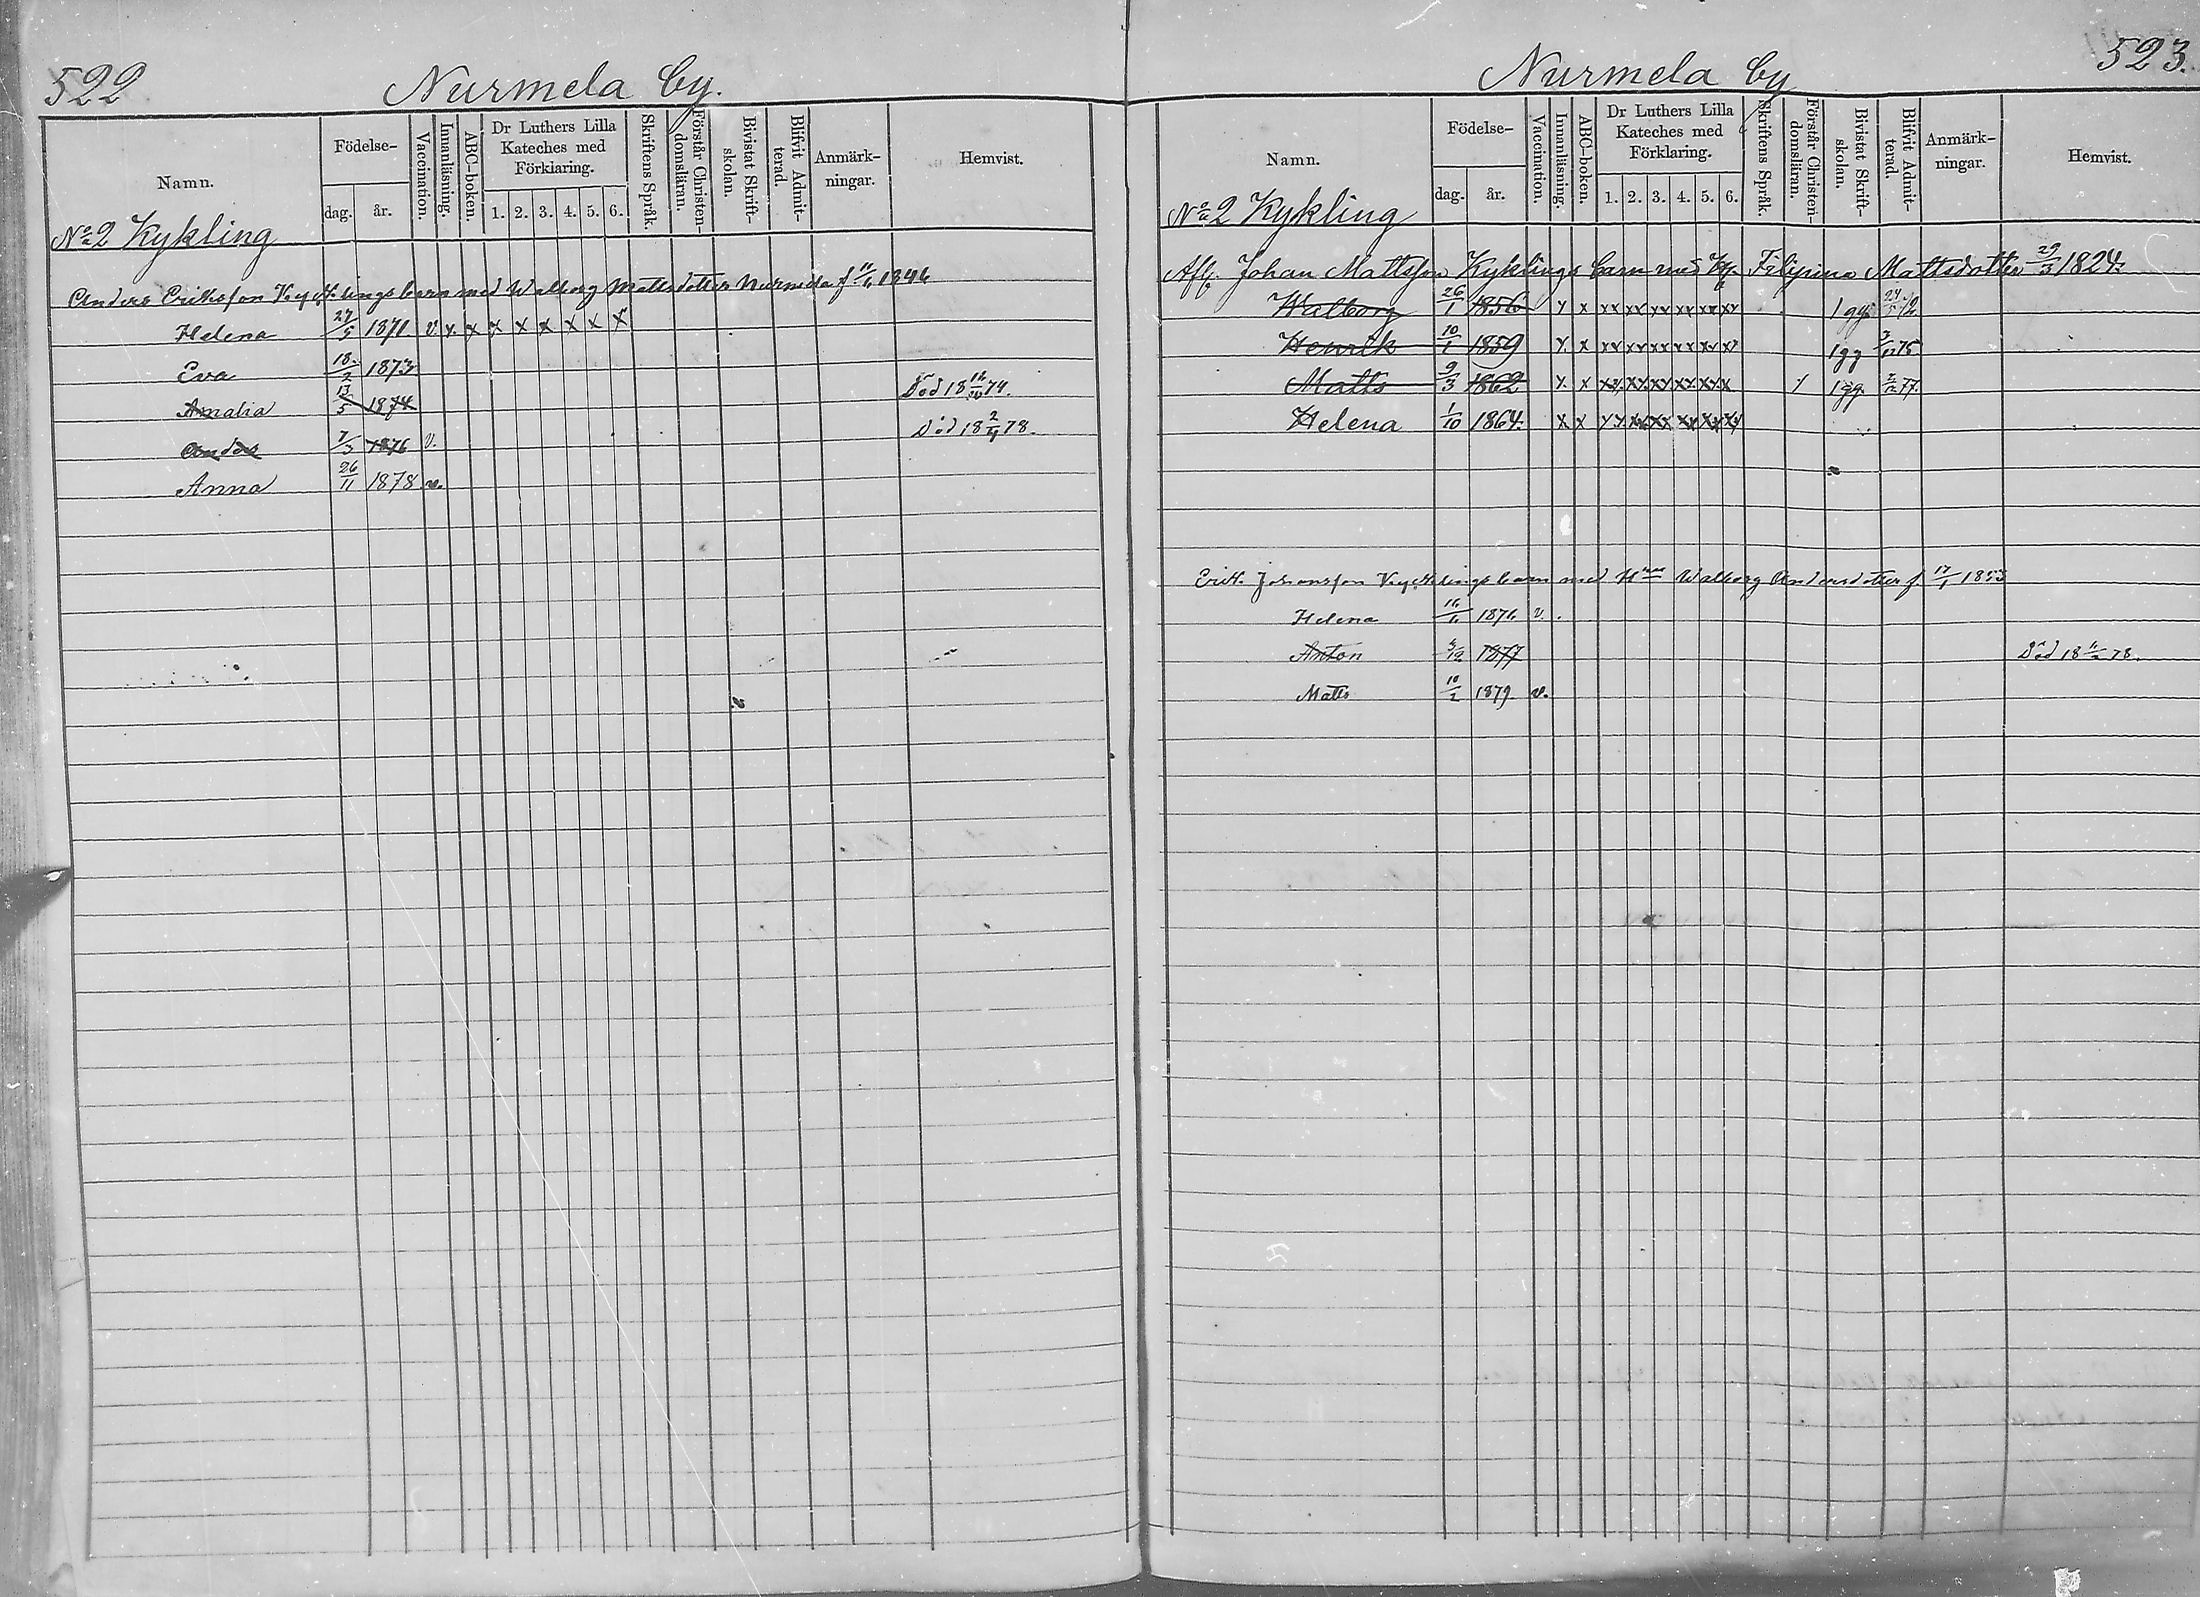 522
Nurmela by.
Namn. Födelse- dag. år. Vaccination. Innanläsning. ABC-boken. Dr Luthers Lilla Kateches med Förklaring. 1. 2. 3. 4. 5. 6. Skriftens Språk. Förstår Christen-domsläran. Bivistat Skrift-skolan. Blifvit Admit-terad. Anmärk-ningar. Hemvist.
No 2 Kykling
Anders Eriksson Kycklings barn med Walborg Mattsdotter Nurmela f. 1846
Helena 27/5 1870 v. x x x x x x x x
Eva 18/2 1873
Amalia 13/5 1874 Död 18 74.
Anders 7/5 1876 v. Död 18 78.
Anna 26/11 1878 v.
523.
Nurmela by
Namn. Födelse- dag. år. Vaccination. Innanläsning. ABC-boken. Dr Luthers Lilla Kateches med Förklaring. 1. 2. 3. 4. 5. 6. Skriftens Språk. Förstår Christen-domsläran. Bivistat Skrift-skolan. Blifvit Admit-terad. Anmärk-ningar. Hemvist.
No 2 Kykling
Afl. Johan Mattsson Kyklings barn med Filipina Mattsdotter 29/3 1824.
Walborg 26/1 1856 x x xx xx xx xx xx xx 1 gg
Henrik 10/1 1859 x x xx xx xx xx xx xx 1 gg 75
Matts 9/3 1862 x x xx xx xx xx xx x 1 gg 77
Helena 1/10 1864 x x xx xx xx xx xx xx
Erik Johansson Kycklings barn med Hu Walborg Andersdotter f. 17/1 1853
Helena 1876 v.
Anton 1877 Död 18 78.
Matts 10/2 1879 v.